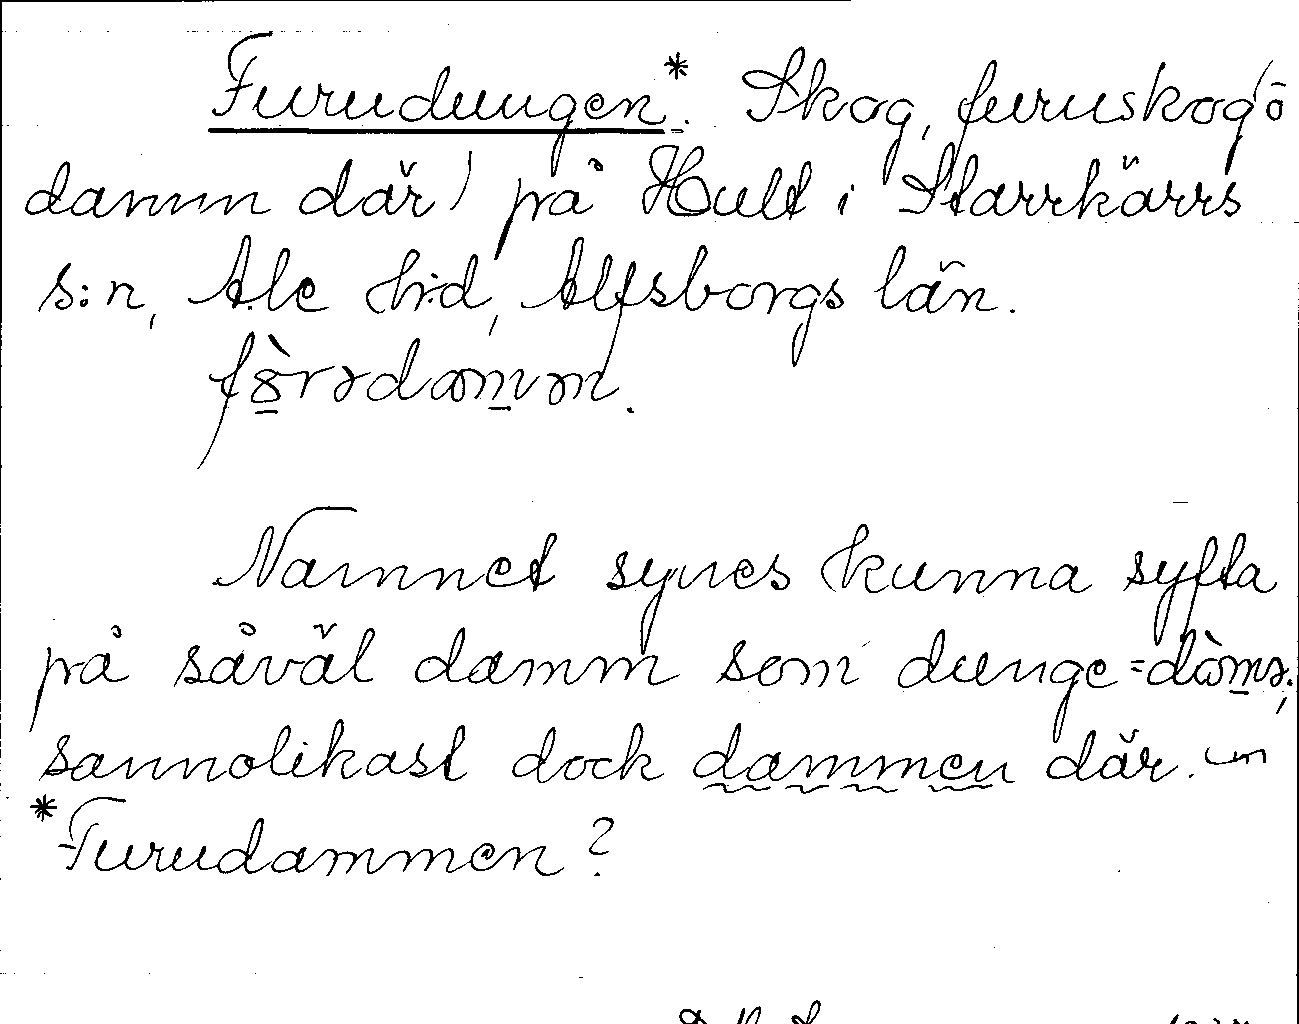 Furudungen.* Skog, furuskog (ö
damm där) på Hult i Starrkärrs
s:n, Ale h:d, Älfsborgs län.
Namnet synes kunna syfta
på såväl damm som dunge =
sannolikast dock dammen där.
*Furudammen?